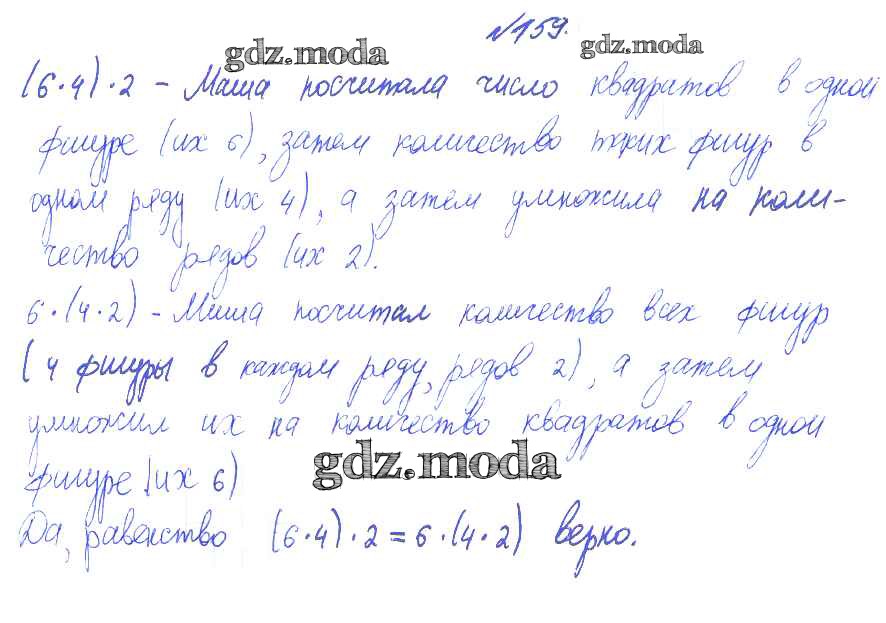 №159.
gdz.moda gdz.moda
(6·4)·2 - Маша посчитала число квадратов в одной
фигуре (их 6), затем количество таких фигур в
одном ряду (их 4), а затем умножила на коли-
чество рядов (их 2).
6·(4·2) - Миша посчитал количество всех фигур
(4 фигуры в каждом ряду, рядов 2), а затем
умножил их на количество квадратов в одной
gdz.moda
фигуре (их 6)
Да, равенство (6·4)·2=6·(4·2) верно.